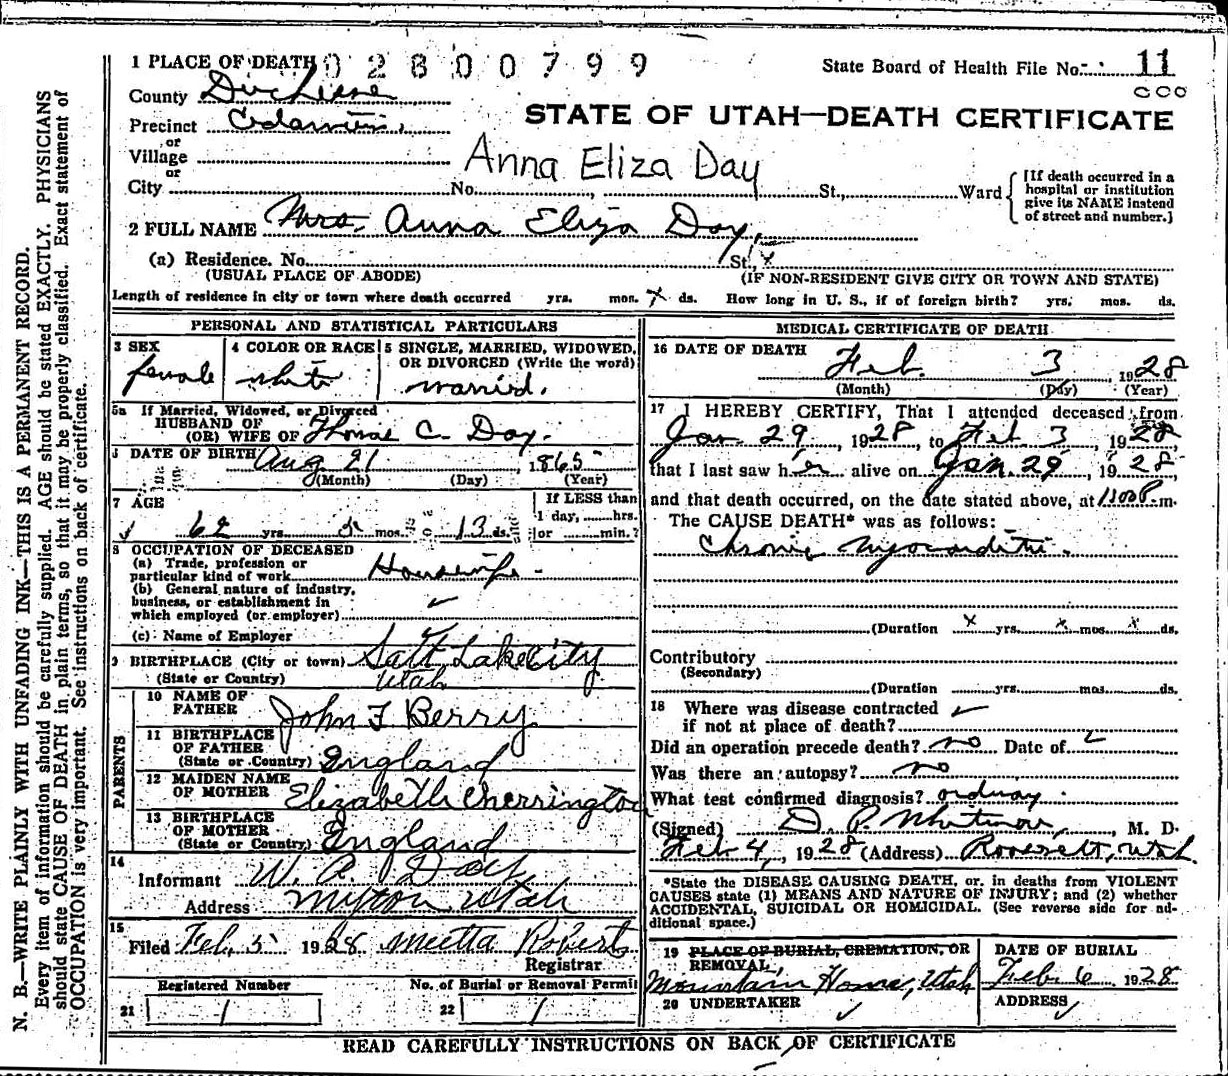 1 PLACE OF DEATH 02800799
State Board of Health File No. 11
County Duchesne
000
STATE OF UTAH—DEATH CERTIFICATE
Precinct
or
Village
Anna Eliza Day
or
City No. St., Ward
[If death occurred in a
hospital or institution
give its NAME instead
of street and number.]
2 FULL NAME Mrs. Anna Eliza Day.
(a) Residence. No. St., x
(USUAL PLACE OF ABODE) (IF NON-RESIDENT GIVE CITY OR TOWN AND STATE)
Length of residence in city or town where death occurred yrs. mos. x ds. How long in U. S., if of foreign birth? yrs. mos. ds.
PERSONAL AND STATISTICAL PARTICULARS
3 SEX
female
4 COLOR OR RACE
white
5 SINGLE, MARRIED, WIDOWED,
OR DIVORCED (Write the word)
married.
5a If Married, Widowed, or Divorced
HUSBAND OF
(OR) WIFE OF Thomas C. Day.
DATE OF BIRTH Aug 21, 1865
(Month) (Day) (Year)
7 AGE
62 yrs. 5 mos. 13 ds.
If LESS than
1 day, hrs.
or min.?
8 OCCUPATION OF DECEASED
(a) Trade, profession or
particular kind of work Housewife -
(b) General nature of industry,
business, or establishment in
which employed (or employer) ✓
(c) Name of Employer
9 BIRTHPLACE (City or town) Salt Lake City
(State or Country) Utah
PARENTS
10 NAME OF
FATHER John F Berry
11 BIRTHPLACE
OF FATHER
(State or Country) England
12 MAIDEN NAME
OF MOTHER Elizabeth Cherrington
13 BIRTHPLACE
OF MOTHER
(State or Country) England
14
Informant W. R. Day
Address Myton Utah
15
Filed Feb. 5 1928 Meetta Roberts
Registrar
Registered Number
21 /
No. of Burial or Removal Permit
22 /
MEDICAL CERTIFICATE OF DEATH
16 DATE OF DEATH Feb. 3, 1928
(Month) (Day) (Year)
17 I HEREBY CERTIFY, That I attended deceased from
Jan 29, 1928, to Feb 3, 1928
that I last saw her alive on Jan. 29, 1928,
and that death occurred, on the date stated above, at 1100 P. m.
The CAUSE DEATH* was as follows:
Chronic Myocarditis.
(Duration x yrs. x mos. x ds.
Contributory
(Secondary)
(Duration yrs. mos. ds.
18 Where was disease contracted ✓
if not at place of death?
Did an operation precede death? no Date of ✓
Was there an autopsy? no
What test confirmed diagnosis? ordinary
(Signed) D. P. Whitmore, M. D.
Feb 4, 1928 (Address) Roosevelt, Utah.
*State the DISEASE CAUSING DEATH, or, in deaths from VIOLENT
CAUSES state (1) MEANS AND NATURE OF INJURY; and (2) whether
ACCIDENTAL, SUICIDAL OR HOMICIDAL. (See reverse side for ad-
ditional space.)
19 PLACE OF BURIAL, CREMATION, OR
REMOVAL,
Mountain Home, Utah
DATE OF BURIAL
Feb. 6 1928
20 UNDERTAKER ✓
ADDRESS ✓
READ CAREFULLY INSTRUCTIONS ON BACK OF CERTIFICATE
N. B.—WRITE PLAINLY WITH UNFADING INK—THIS IS A PERMANENT RECORD.
Every item of information should be carefully supplied. AGE should be stated EXACTLY. PHYSICIANS
should state CAUSE OF DEATH in plain terms, so that it may be properly classified. Exact statement of
OCCUPATION is very important. See instructions on back of certificate.